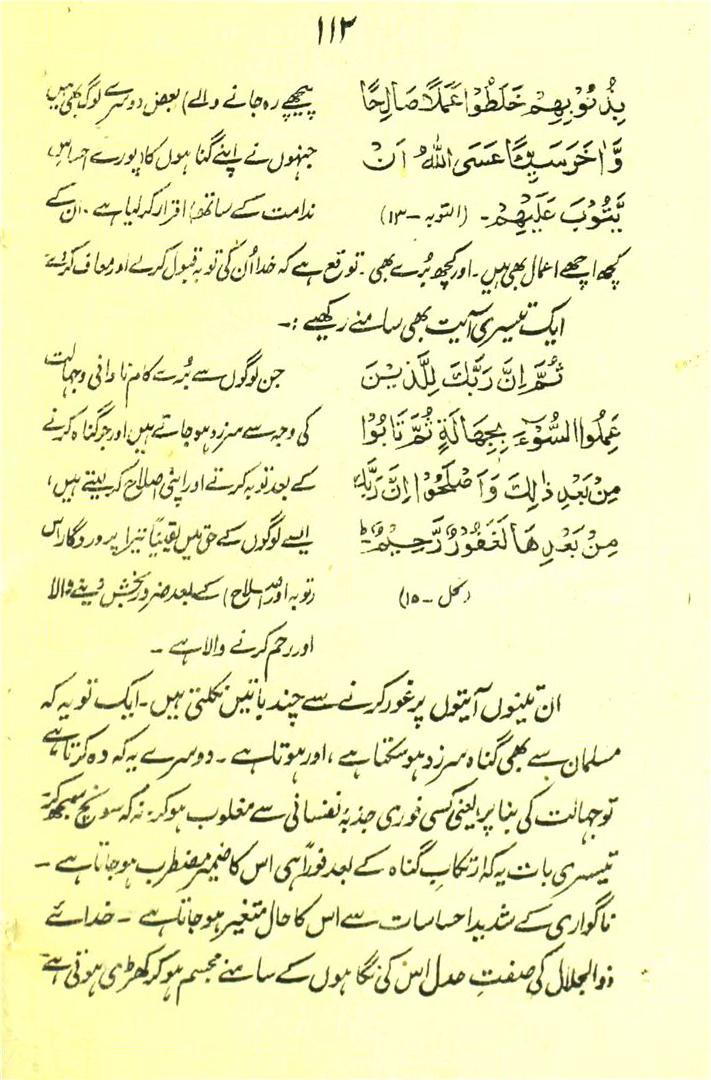 ۱۱۲
بِذُنُوْبِهِمْ خَلَطُوْا عَمَلًا صَالِحًا
وَّاٰخَرَ سَيِّئًا عَسَى اللّٰهُ اَنْ
يَّتُوْبَ عَلَيْهِمْ۔ (التوبہ - ۱۳)
پیچھے رہ جانے والے) بعض دوسرے لوگ بھی ہیں
جنہوں نے اپنے گناہوں کا (پورے احساسِ
ندامت کے ساتھ) اقرار کر لیا ہے۔ ان کے
کچھ اچھے اعمال بھی ہیں۔ اور کچھ بُرے بھی۔ توقع ہے کہ خدا اُن کی توبہ قبول کرلے اور معاف کردے
ایک تیسری آیت بھی سامنے رکھیے :۔
ثُمَّ اِنَّ رَبَّكَ لِلَّذِيْنَ
عَمِلُوا السُّوْٓءَ بِجَهَالَةٍ ثُمَّ تَابُوْا
مِنْ بَعْدِ ذٰلِكَ وَاَصْلَحُوْا اِنَّ رَبَّكَ
مِنْ بَعْدِهَا لَغَفُوْرٌ رَّحِيْمٌ ط
(نحل - ۱۵)
جن لوگوں سے بُرے کام نادانی و جہالت
کی وجہ سے سرزد ہو جاتے ہیں اور جو گناہ کرنے
کے بعد توبہ کرتے اور اپنی اصلاح کر لیتے ہیں،
ایسے لوگوں کے حق میں یقیناً تیرا پروردگار اس
(توبہ اور اصلاح) کے بعد ضرور بخش دینے والا
اور رحم کرنے والا ہے ۔
ان تینوں آیتوں پر غور کرنے سے چند باتیں نکلتی ہیں۔ ایک تو یہ کہ
مسلمان سے بھی گناہ سرزد ہو سکتا ہے، اور ہوتا ہے ۔ دوسرے یہ کہ وہ کرتا ہے
تو جہالت کی بنا پر، یعنی کسی فوری جذبہ نفسانی سے مغلوب ہو کر، نہ کہ سونچ سمجھ کر،
تیسری بات یہ کہ ارتکابِ گناہ کے بعد فوراً ہی اس کا ضمیر مضطرب ہو جاتا ہے ۔
ناگواری کے شدید احساسات سے اس کا حال متغیر ہو جاتا ہے ۔ خدائے
ذو الجلال کی صفتِ عدل اس کی نگاہوں کے سامنے مجسم ہو کر کھڑی ہوتی ہے